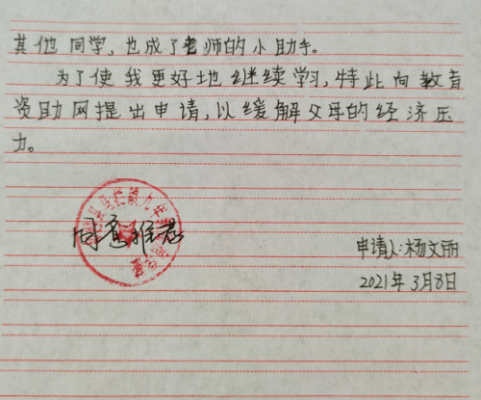 其他同学,也成了老师的小助手。
为了使我更好地继续学习,特此向教育
资助网提出申请,以缓解父母的经济压
力。
同意推荐
申请人:杨文丽
2021年3月8日